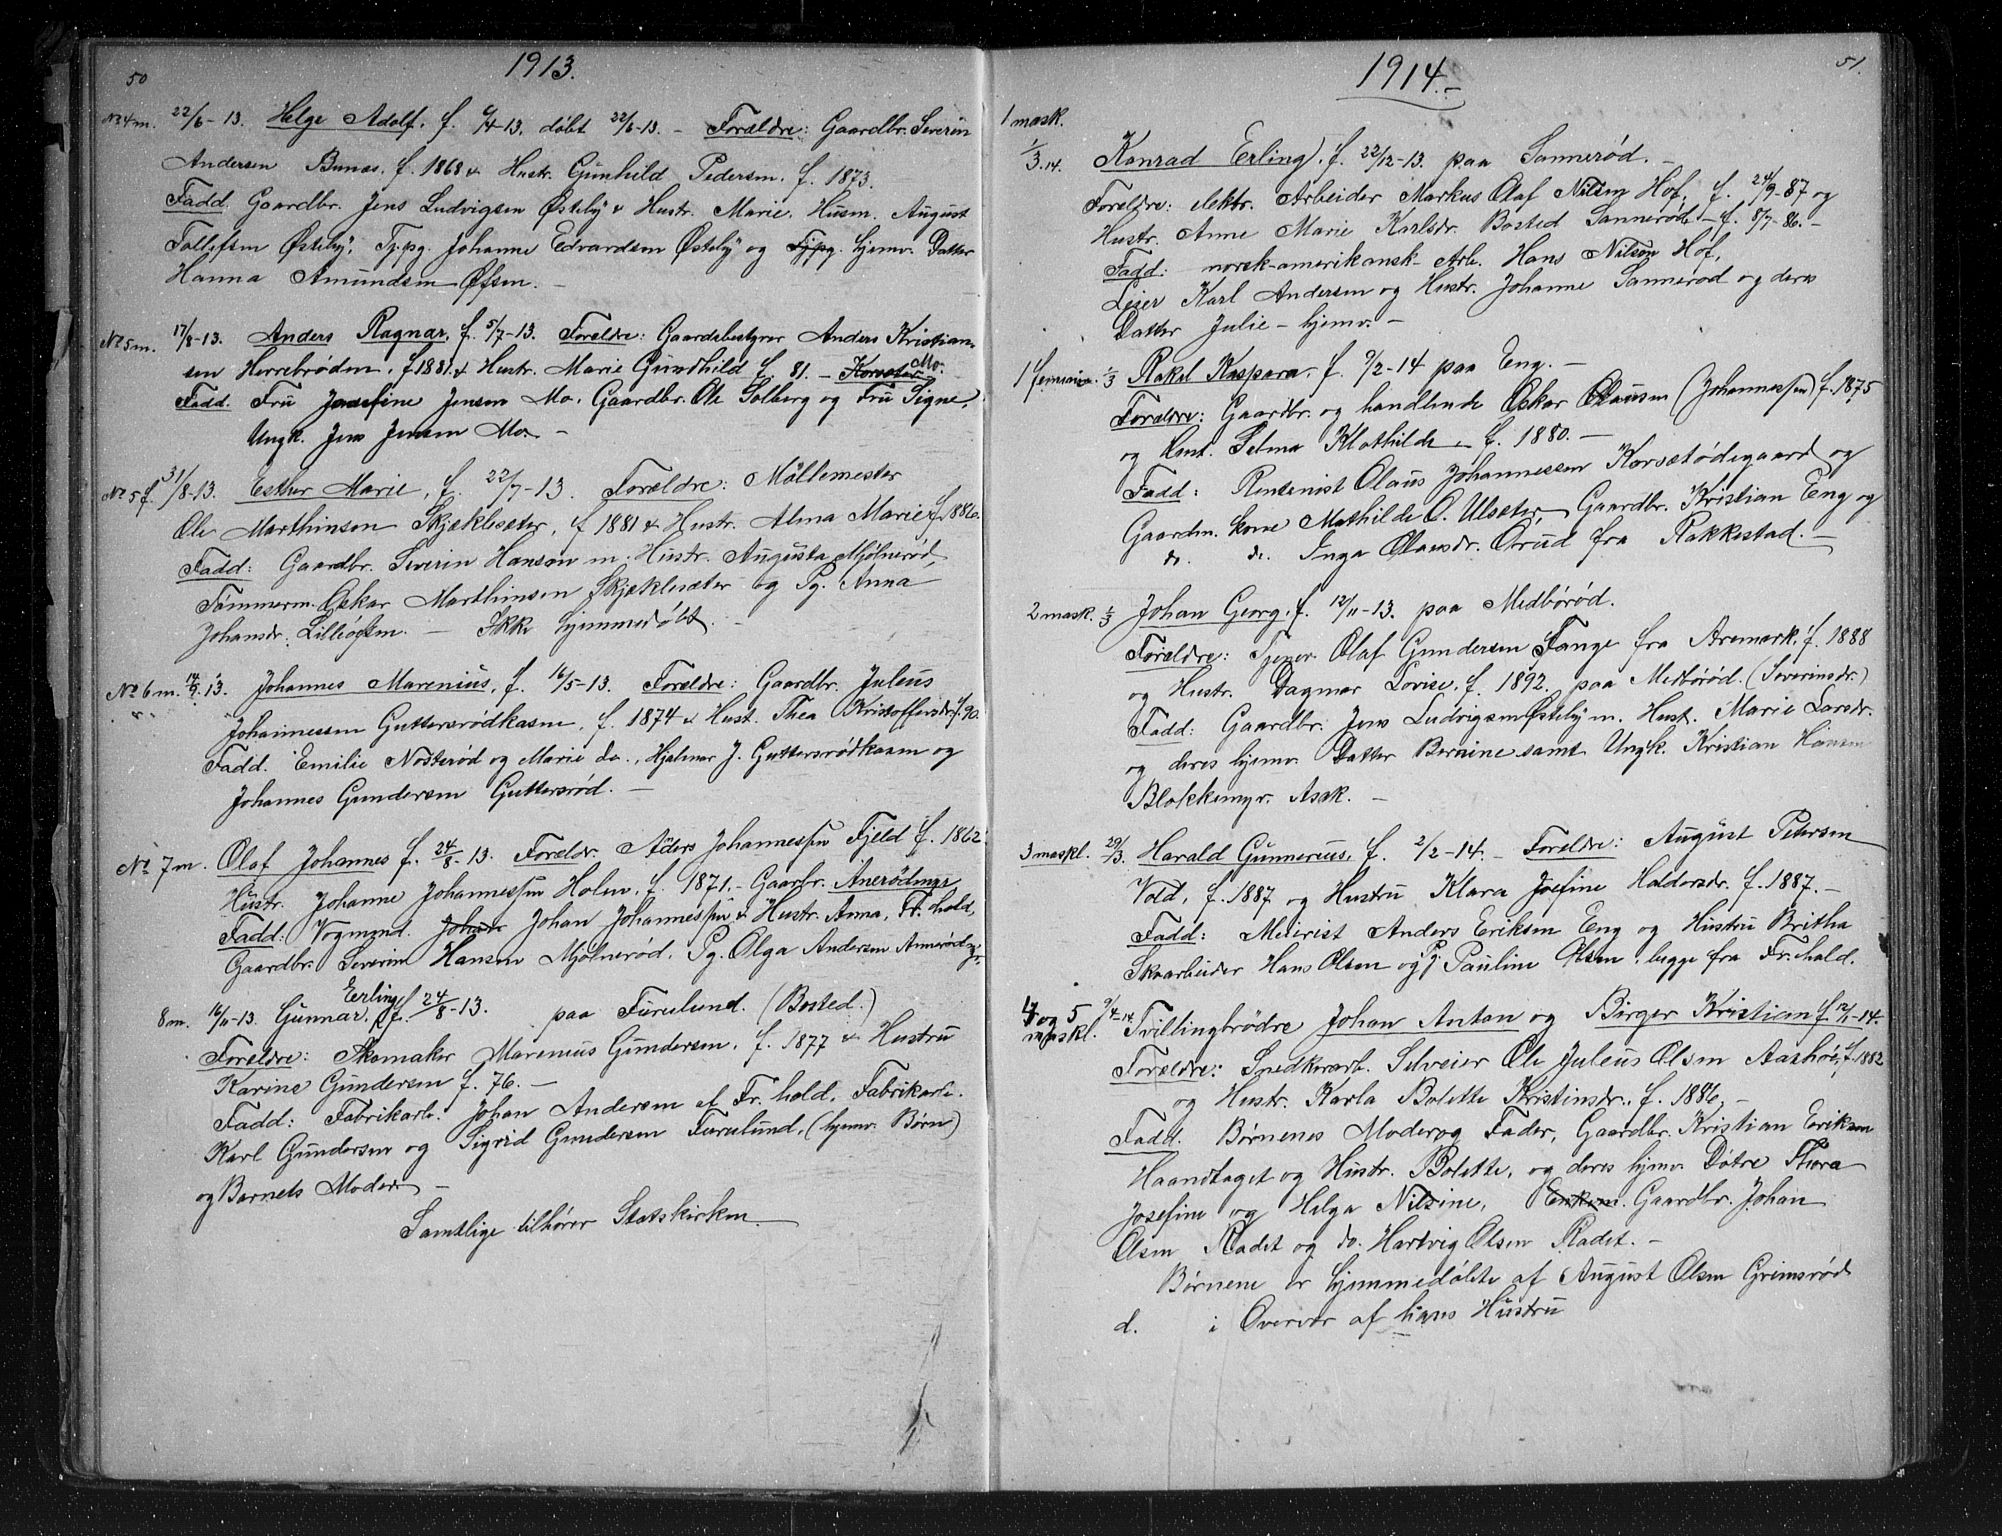 50
1913.
No 4 m. 22/6-13. Helge Adolf, f. 6/4-13. döbt 22/6-13. - Forældre: Gaardbr. Severin
Andersen Bunæs, f. 1868 & Hustr. Gunhild Pedersen, f. 1873.
Fadd. Gaardbr. Jens Ludvigsen Østeby & Hustr. Marie. Husm. August
Tollefsen Østeby, Tjpg. Johanne Edvardsen Østeby og Tjpg. hjemv. Datter
Hanna Amundsen Øffsen. -
No 5 m. 17/8-13. Anders Ragnar, f. 5/7-13. Foreldre: Gaardsbestyrer Anders Kristian-
sen Herrebrøden, f 1881. & Hustr. Marie Gundhild f. 81. - Korsæter Mo.
Fadd. Fru Josefine Jensen Mo, Gaardbr. Ole Solberg og Fru Signe,
Ungk. Jens Jensen Mo. -
No 5 f. 31/8-13. Esther Marie, f. 22/7-13. Forældre: Möllemester
Ole Marthinsen Skjæklesæter, f 1881 & Hustr. Alma Marie f. 1886.
Fadd: Gaardbr. Severin Hanson m. Hustr. Augusta Mjölnerød,
Tömmerm. Oskar Marthinsen Skjæklesæter og Pg. Anna
Johansdr. Lilleøffsen. - Ikke hjemmedöbt.
No 6 m. 14/9. 13. Johannes Marenius, f. 16/5-13. Foreldre: Gaardbr. Juleus
Johannessen Guttersrødkasen, f. 1874 & Hust. Thea Kristoffersdr. f. 90.
Fadd. Emilie Nodterød og Marie do., Hjalmar J. Guttersrødkasen og
Johannes Gundersen Guttersrød. -
No 7 m. Olaf Johannes f. 24/8-13. Foreldr. Aders Johannessen Fjeld f. 1862.
Hustr. Johanne Johannessen Holm, f. 1871. - Gaarbr. Anerödinge
Fadd: Vogmnd. Johan Johan Johannessen & Hustr. Anna, Fr.hald,
Gaardbr. Severin Hansen Mjölnerød. Pg. Olga Andersen Annerödnge.
8 m. 16/11-13. Gunnar Erling, f. 24/8-13. paa Furulund. (Bosted.)
Foreldre: Skomaker Marenius Gundersen, f. 1877 & Hustru
Karine Gundersen f. 76. -
Fadd: Fabrikarb. Johan Andersen af Fr.hald, Fabrikarb.
Karl Gundersen og Sigrid Gundersen Furulund, (hjemv. Børn)
og Barnets Moder -
Samtlige tilhører Statskirken.
51.
1914.-
1 mask.
1/3.14. Konrad Erling, f. 22/12-13. paa Sannerød. -
Foreldre: elektr. Arbeider Markus Olaf Nilsen Hof, f. 24/9-87 og
Hustr. Anne Marie Karlsdr. Bosted Sannerød. - f. 8/7-86. -
Fadd: norsk-amerikansk Arb. Hans Nilson Hof,
Leier Karl Andersen og Hustr. Johanne Sannerød og deres
Datter Julie - hjemv. -
1 feminin. 1/3 Rakel Kaspara, f. 9/2-14 paa Eng. -
Foreldre: Gaardbr. og handlende Oskar Olausen (Johannessen) f. 1875
og Hust. Selma Klothilde - f. 1880. -
Fadd: Rentenist Olaus Johannessen Korsetødegaard og
Gaardm. kone Mathilde O. Ulsæter, Gaardbr. Kristian Eng og
do. do. Inga Olausdr. Orud fra Rakkestad. -
2 mask. 1/3 Johan Georg, f. 12/11-13. paa Medbörød.
Foreldre: Tjener Olaf Gundersen Tange fra Aremark, f. 1888
og Hustr. Dagmar Lovise, f. 1892. paa Medbörød. (Severinsdr.)
Fadd: Gaardbr. Jens Ludvigsen Østeby m. Hust. Marie Larsdr.
og deres hjemv. Datter Bernine samt Ungk. Kristian Hansen
Blokkemyr. Asak. -
3 maskl. 29/3. Harald Gunnerius, f. 2/2-14. - Foreldre: August Petersen
Vold, f. 1887 og Hustru Klara Josefine Haldorsdr. f. 1887. -
Fadd: Meierist Anders Eriksen Eng og Hustru Britha
Skoarbeider Hans Olsen og Pg. Pauline Olsen, begge fra Fr.hald.
4 og 5 maskl. 9/4-14 Tvillingbrödre Johan Anton og Birger Kristian f. 12/1-14.
Foreldre: Snedkerarb. Selveier Ole Juleus Olsen Aashöi, f. 1882
og Hustr. Karla Bolette Kristinsdr. f. 1886. -
Fadd. Børnenes Moder og Fader, Gaardbr. Kristian Eriksen
Haandtaget og Hustr. Bolette, og deres hjemv. Døtre Thora
Josefine og Helga Nilsine, Gaardbr. Johan
Olsen Radet og do. Hartvig Olsen Radet. -
Børnene er hjemmedöbte af August Olsen Grimsrød
d. i Overvær af hans Hustru